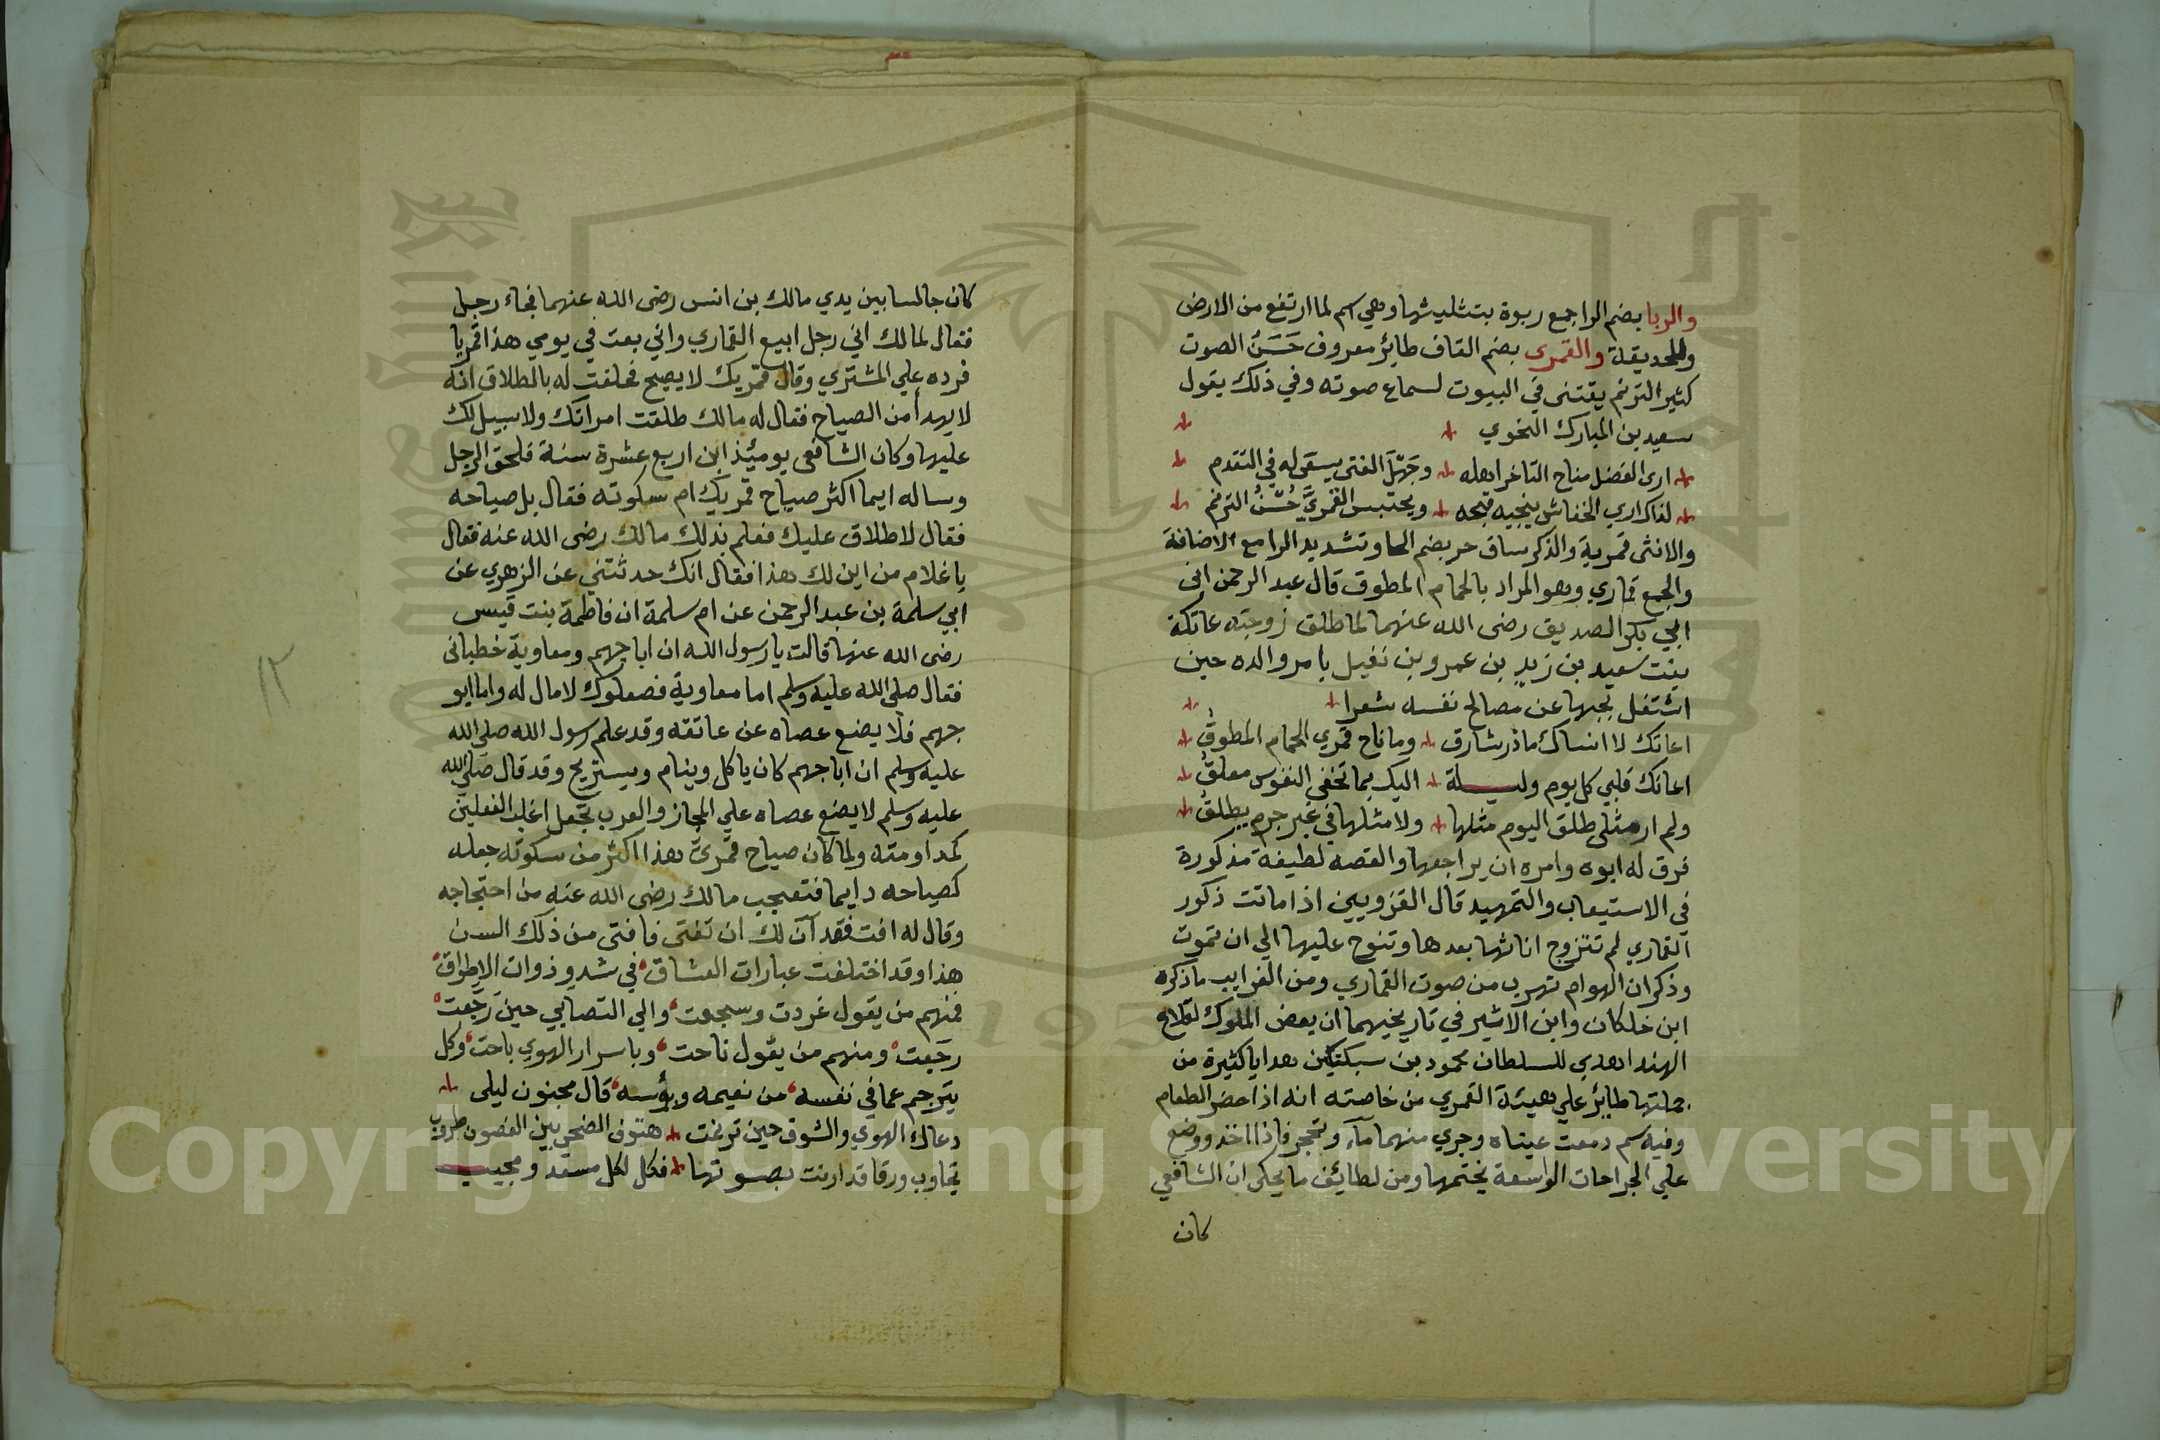 والربا بضم الراجمع ربوة بتثليثها وهي اسم لما ارتفع من الارض
وللحديقة والقمرى بضم القاف طائر معروف حَسَنُ الصوت
كثير الترنم يقتنى في البيوت لسماع صوته وفي ذلك يقول
سعيد بن المبارك النحوي
ارى الفضل مناح التاخر اهله وجَهْلَ الفتى يسعَى له في التقدم
لذاك اري الخفاش ينجيه قبحه ويحتبس القمريَّ حُسْنُ الترنم
والانثى قمرية والذكر ساق حر بضم الحا وتشديد الرا مع الاضافة
والجمع قماري وهو المراد بالحمام المطوق قال عبد الرحمن ابن
ابي بكر الصديق رضى الله عنهما لما طلق زوجته عاتكة
بنت سعيد بن زيد بن عمرو بن نفيل بامر والده حين
اشتغل بحبها عن مصالح نفسه شعرا
اعاتك لا انساك ماذر شارق وما ناح قمري الحمام المطوقُ
اعاتك قلبي كل يوم وليلة اليك بما تخفى النفوس معلقُ
ولم ار مثلى طلق اليوم مثلها ولا مثلها في غير جرم يطلقُ
فرق له ابوه وامره ان يراجعها والقصه لطيفة مذكورة
في الاستيعاب والتمهيد قال القزويني اذا ماتت ذكور
القماري لم تتزوج اناثها بعدها وتنوح عليها الي ان تموت
وذكر ان الهوام تهرب من صوت القماري ومن الغرايب ماذكره
ابن خلكان وابن الاثير في تاريخيهما ان بعض الملوك لقلاع
الهند اهدي للسلطان محمود بن سبكتكين هدايا كثيرة من
جملتها طائر علي هيئة القمري من خاصته انه اذا حضر الطعام
وفيه سم دمعت عيناه وجري منهما ماء وتحجر فاذا اخذ ووضع
علي الجراحات الواسعة يختمها ومن لطائف ما يحكى ان الشافعي
كان
كان جالسا بين يدي مالك بن انس رضى الله عنهما فجاء رجل
فقال لمالك اني رجل ابيع القماري واني بعت في يومي هذا قمريا
فرده علي المشتري وقال قمريك لا يصيح فحلفت له بالطلاق انه
لا يهدأ من الصياح فقال له مالك طلقت امراتك ولا سبيل لك
عليها وكان الشافعى يومئذ ابن اربع عشرة سنة فلحق الرجل
وساله ايما اكثر صياح قمريك ام سكوته فقال بل صياحه
فقال لا طلاق عليك فعلم بذلك مالك رضى الله عنه فقال
يا غلام من اين لك هذا فقال انك حدثتني عن الزهري عن
ابي سلمة بن عبد الرحمن عن ام سلمة ان فاطمة بنت قيس
رضى الله عنها قالت يا رسول الله ان ابا جهم ومعاوية خطبانى
فقال صلى الله عليه وسلم اما معاوية فصعلوك لا مال له واما ابو
جهم فلا يضع عصاه عن عاتقه وقد علم رسول الله صلى الله
عليه وسلم ان ابا جهم كان ياكل وينام ويستريح وقد قال صلى الله
عليه وسلم لا يضع عصاه علي المجاز والعرب تجعل اغلب الفعلين
كمداومته ولما كان صياح قمرىّ هذا اكثر من سكوته جعله
كصياحه دايما فتعجب مالك رضى الله عنه من احتجاجه
وقال له افت فقد آن لك ان تفتى فافتى من ذلك السن
هذا وقد اختلفت عبارات العشاق في شدو ذوات الاطواق
فمنهم من يقول غردت وسجعت والي التصابي حين رَجَعت
رجَعت ومنهم من يقول ناحت وباسرار الهوي باحت وكل
يترجم عما في نفسه من نعيمه وبؤسه قال مجنون ليلى
دعاك الهوي والشوق حين ترنمت هتوف الضحى بين الغصون طروب
تجاوب ورقا قد ارنت بصوتها فكل لكل مسعد ومجيب
١٢
Copyright © King Saud University